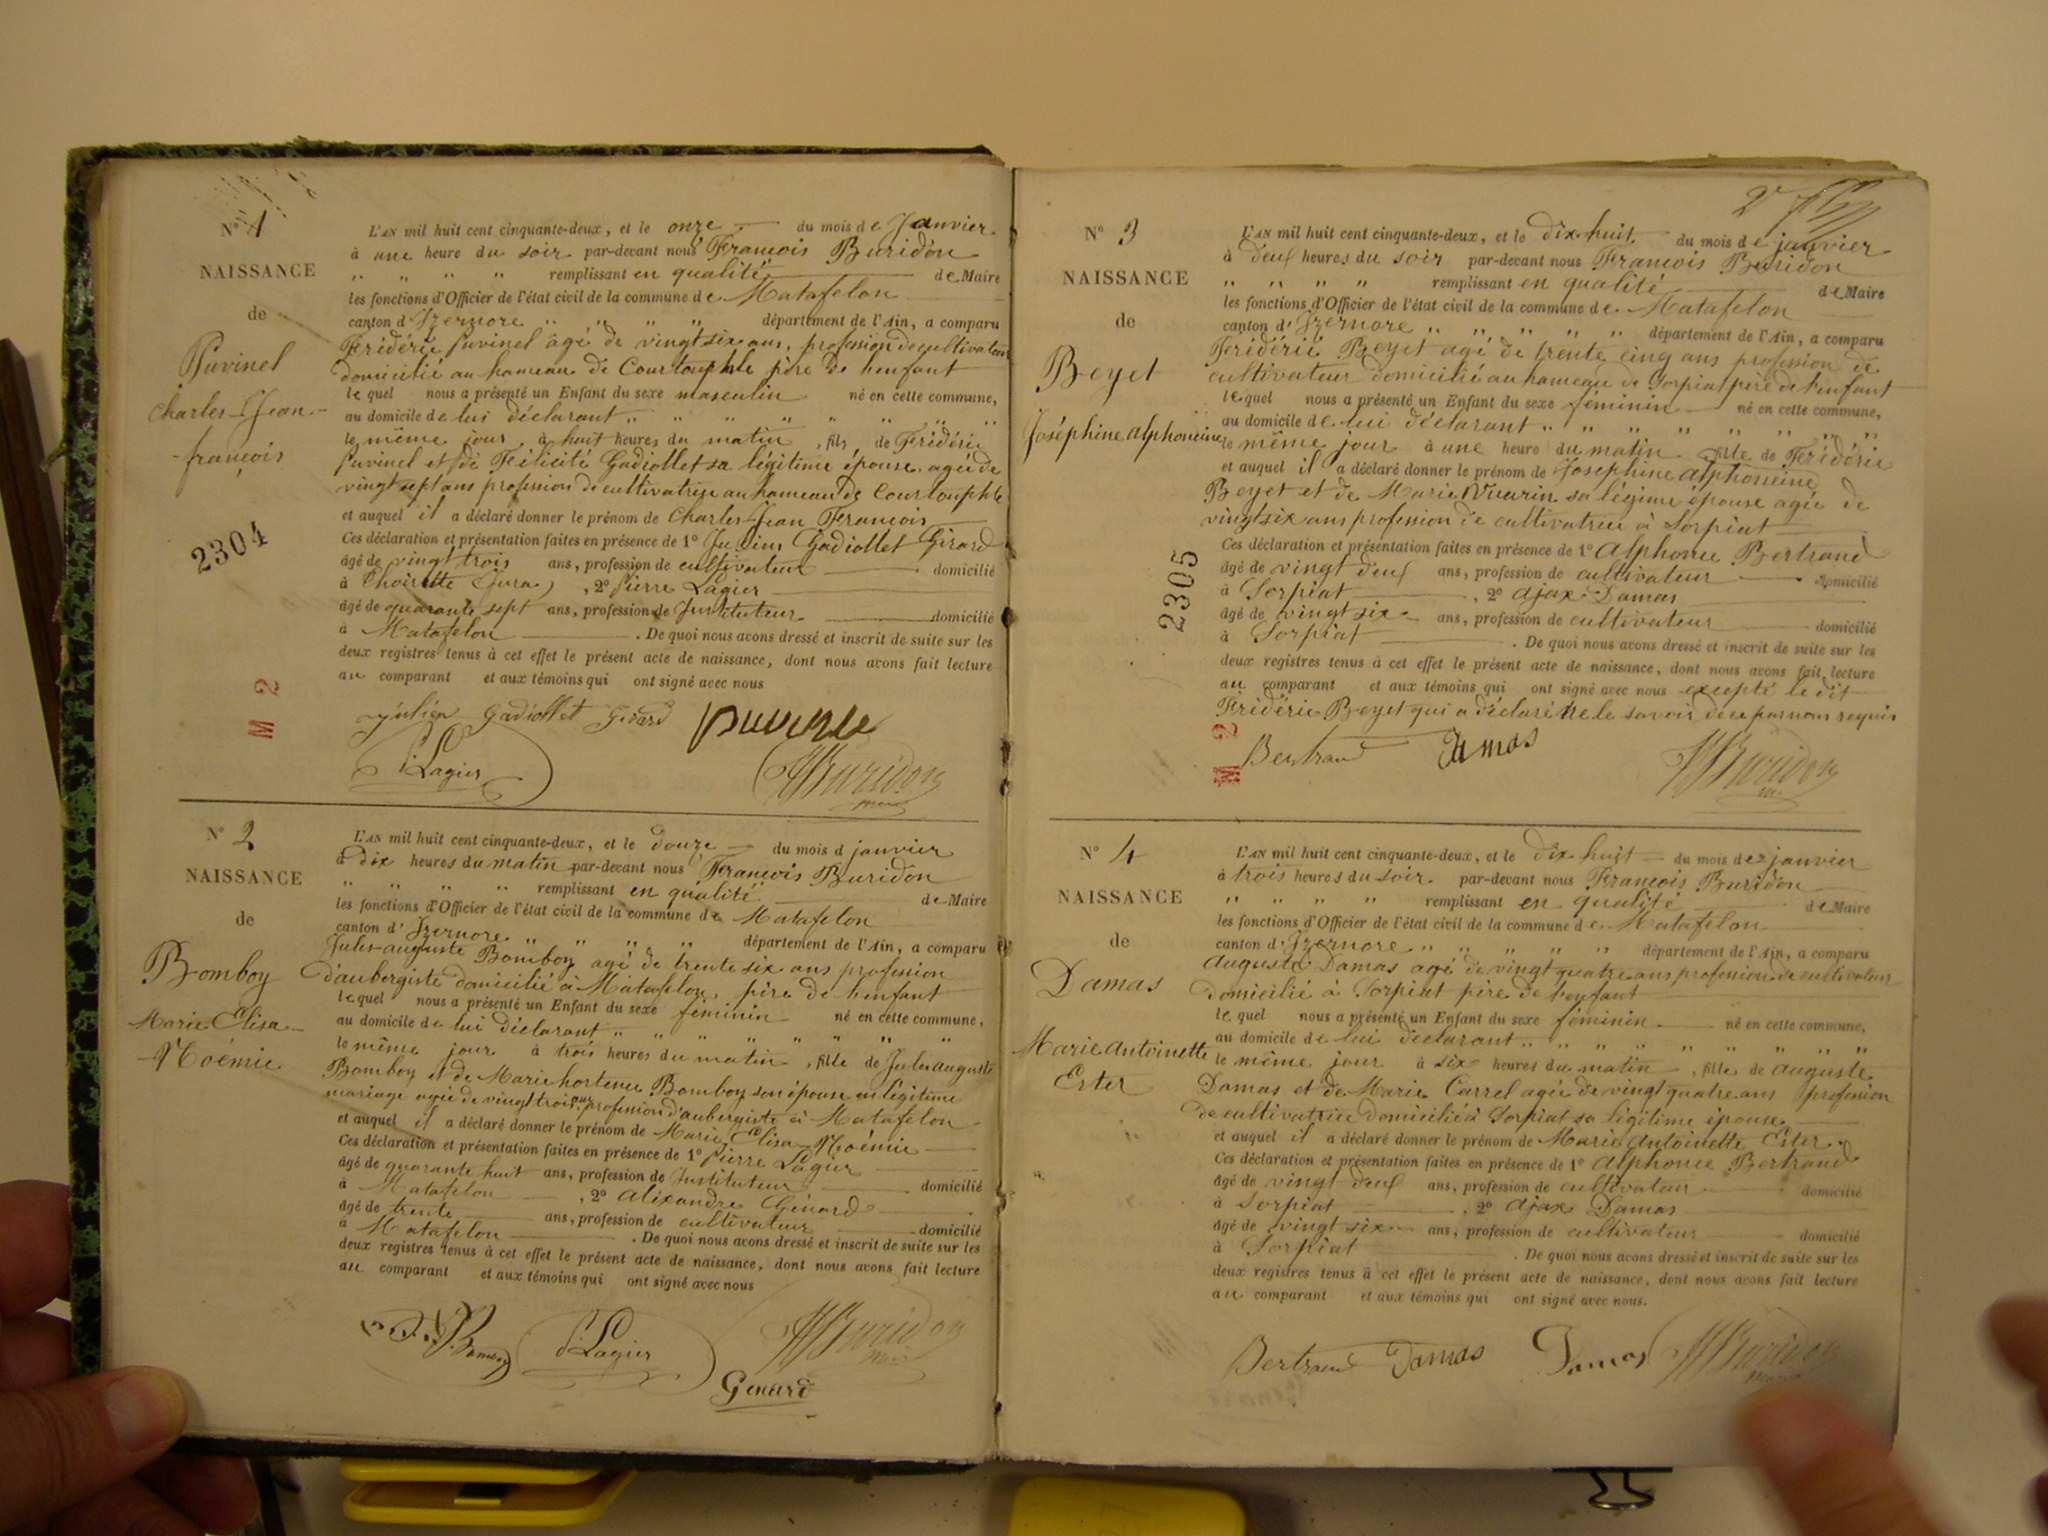 N° 1
NAISSANCE
de
Puvinel
Charles-Jean-
-françois
2304
M 2
L'AN mil huit cent cinquante-deux, et le onze du mois de Janvier
à une heure du soir par-devant nous François Buridon
" " " " remplissant en qualité de Maire
les fonctions d'Officier de l'état civil de la commune de Matafelon
canton d'Izernore " " " " département de l'Ain, a comparu
Frédéric Puvinel âgé de vingt six ans, profession de cultivateur
domicilié au hameau de Courtouphle père de l'enfant
lequel nous a présenté un Enfant du sexe masculin né en cette commune,
au domicile de lui déclarant " " " " " "
le même jour, à huit heures du matin, fils de Frédéric
Puvinel et de Félicité Gadiollet sa légitime épouse, agée de
vingt sept ans profession de cultivatrice au hameau de Courtouphle
et auquel il a déclaré donner le prénom de Charles-Jean François
Ces déclaration et présentation faites en présence de 1° Julien Gadiollet Girard
âgé de vingt trois ans, profession de cultivateur domicilié
à Thoirette (Jura), 2° Pierre Lagier
âgé de quarante sept ans, profession de Instituteur domicilié
à Matafelon . De quoi nous avons dressé et inscrit de suite sur les
deux registres tenus à cet effet le présent acte de naissance, dont nous avons fait lecture
au comparant et aux témoins qui ont signé avec nous
Julien Gadiollet Girard Puvinel
P. Lagier Buridon
maire
N° 2
NAISSANCE
de
Bomboy
Marie-Elisa-
-Noémie
L'AN mil huit cent cinquante-deux, et le douze du mois d janvier
à dix heures du matin par-devant nous François Buridon
" " " " remplissant en qualité de Maire
les fonctions d'Officier de l'état civil de la commune de Matafelon
canton d'Izernore " " " " département de l'Ain, a comparu
Jules-auguste Bomboy agé de trente six ans profession
d'aubergiste domicilié à Matafelon, père de l'enfant
lequel nous a présenté un Enfant du sexe féminin né en cette commune,
au domicile de lui déclarant " " " " " "
le même jour à trois heures du matin, fille de Jules auguste
Bomboy et de Marie hortense Bomboy son épouse en légitime
mariage agée de vingt trois ans profession d'aubergiste à Matafelon
et auquel il a déclaré donner le prénom de Marie, Elisa Noémie
Ces déclaration et présentation faites en présence de 1° Pierre Lagier
âgé de quarante huit ans, profession de Instituteur domicilié
à Matafelon , 2° Alixandre Génard
âgé de trente ans, profession de cultivateur domicilié
à Matafelon . De quoi nous avons dressé et inscrit de suite sur les
deux registres tenus à cet effet le présent acte de naissance, dont nous avons fait lecture
au comparant et aux témoins qui ont signé avec nous
Bomboy P. Lagier Buridon
Maire
Genard
2e
N° 3
NAISSANCE
de
Beyet
Joséphine alphonsine
2305
M 2
L'AN mil huit cent cinquante-deux, et le dix huit du mois de janvier
à deux heures du soir par-devant nous François Buridon
" " " " remplissant en qualité de Maire
les fonctions d'Officier de l'état civil de la commune de Matafelon
canton d'Izernore " " " " " département de l'Ain, a comparu
Frédéric Beyet agé de trente cinq ans profession de
cultivateur domicilié au hameau de Sorpiat père de l'enfant
lequel nous a présenté un Enfant du sexe féminin né en cette commune,
au domicile de lui déclarant " " " " " " "
le même jour à une heure du matin fille de Frédéric
et auquel il a déclaré donner le prénom de Josephine alphonsine
Beyet et de Marie Vuarin sa légime épouse agée de
vingt six ans profession de cultivatrice à Sorpiat
Ces déclaration et présentation faites en présence de 1° Alphonse Bertrand
âgé de vingt deux ans, profession de cultivateur domicilié
à Sorpiat , 2° Ajax Damas
âgé de vingt six ans, profession de cultivateur domicilié
à Sorpiat . De quoi nous avons dressé et inscrit de suite sur les
deux registres tenus à cet effet le présent acte de naissance, dont nous avons fait lecture
au comparant et aux témoins qui ont signé avec nous excepté le dit
Frédéric Beyet qui a déclaré ne le savoir de ce par nous requis
Bertrand Damas Buridon
N° 4
NAISSANCE
de
Damas
Marie Antoinette
Ester
L'AN mil huit cent cinquante-deux, et le dix huit du mois de janvier
à trois heures du soir. par-devant nous François Buridon
" " " " remplissant en qualité de Maire
les fonctions d'Officier de l'état civil de la commune de Matafelon
canton d'Izernore " " " " " département de l'Ain, a comparu
Auguste Damas agé de vingt quatre ans profession de cultivateur
domicilié à Sorpiat père de l'enfant
lequel nous a présenté un Enfant du sexe féminin né en cette commune,
au domicile de lui déclarant " " " " " " "
le même jour à six heures du matin, fille de Auguste
Damas et de Marie Carrel agée de vingt quatre ans profession
de cultivatrice domicilié à Sorpiat sa légitime épouse
et auquel il a déclaré donner le prénom de Marie Antoinette Ester.
Ces déclaration et présentation faites en présence de 1° Alphonse Bertrand
âgé de vingt deux ans, profession de cultivateur domicilié
à Sorpiat , 2° Ajax Damas
âgé de vingt six ans, profession de cultivateur domicilié
à Sorpiat . De quoi nous avons dressé et inscrit de suite sur les
deux registres tenus à cet effet le présent acte de naissance, dont nous avons fait lecture
au comparant et aux témoins qui ont signé avec nous.
Bertrand Damas Damas Buridon